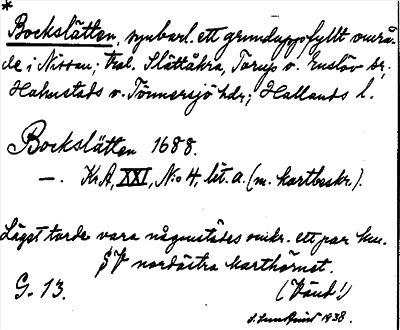 *
Bockslätten, synbarl. ett grunduppfyllt områ-
de i Nissan; trol. Slättåkra, Torup o. Enslöv sr;
Halmstads o. Tönnersjö hdr; Hallands l.
Bockslätten 1688.
—. Kr.A, XXI, No 4, lit. a. (m. kartbeskr.).
Läget torde vara någonstädes omkr. ett par km.
SV nordöstra karthörnet.
G. 13. (Vänd!)
S. Lundquist 1938.